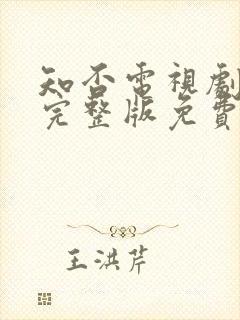 知否電視劇
完整版免費
王洪芹